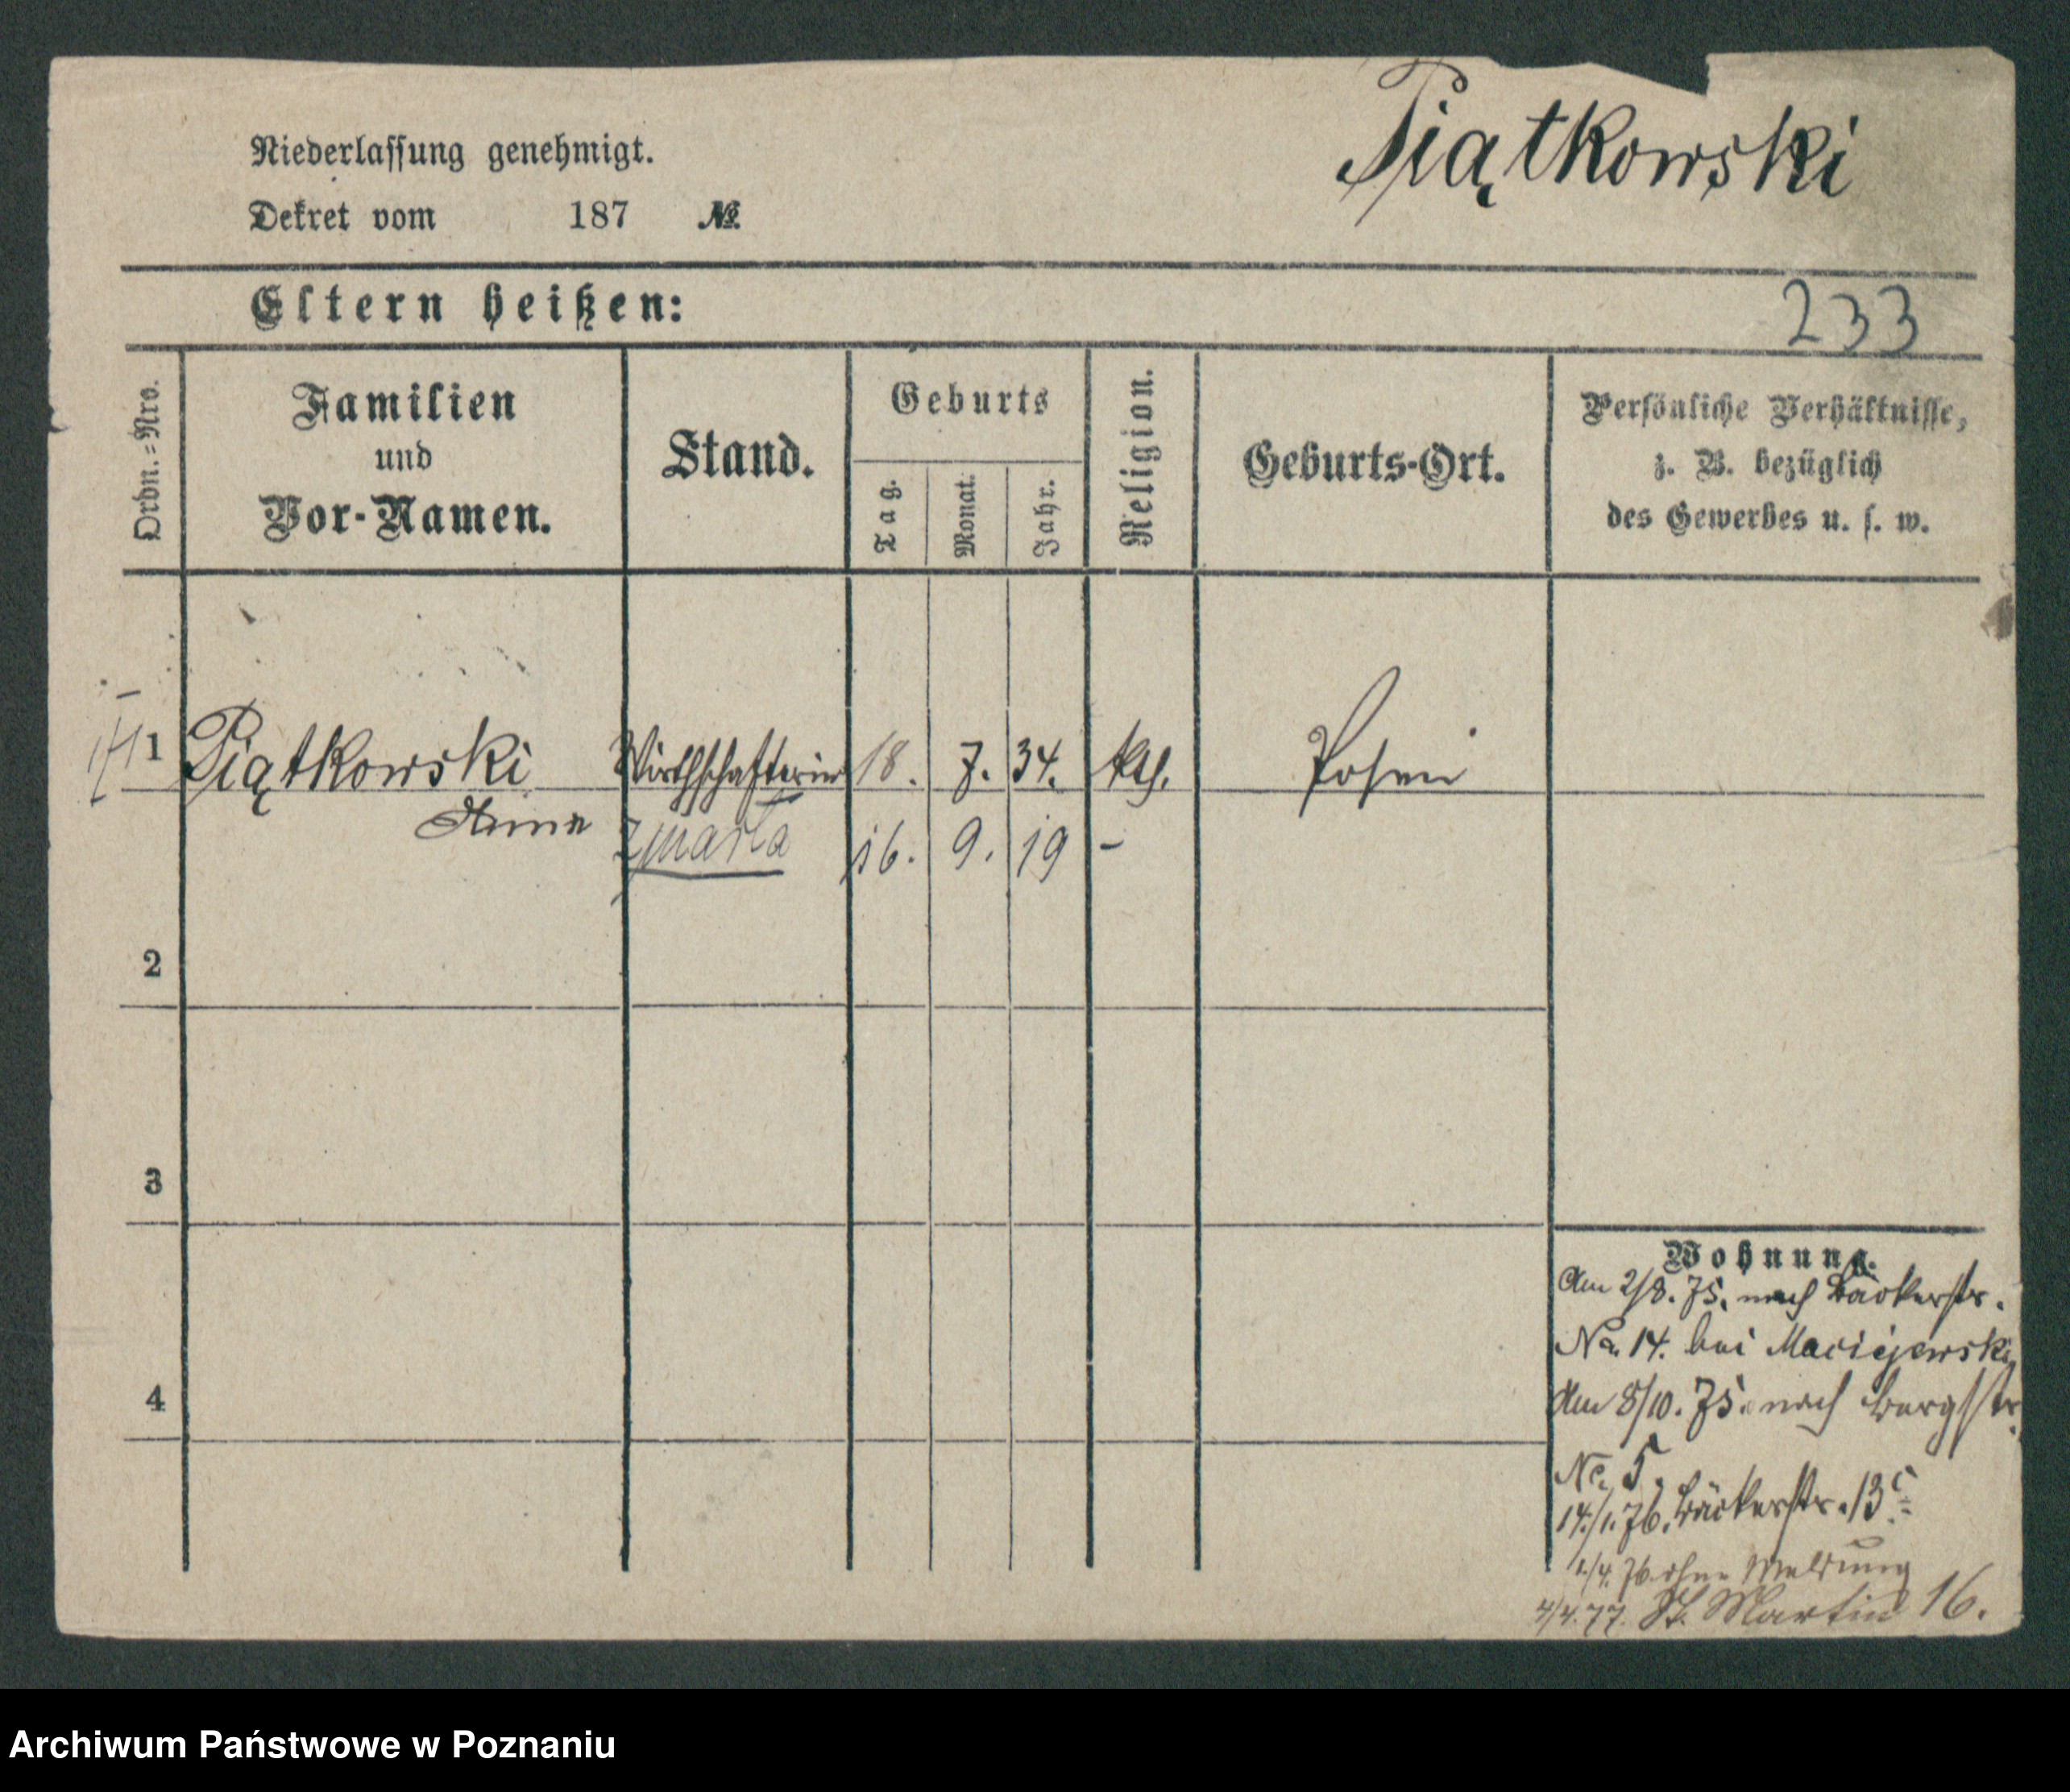 Niederlassung genehmigt.
Dekret vom 187 №
Piątkowski
Eltern heißen:
233
Ordn.-Nro.
Familien
und
Vor-Namen.
Stand.
Geburts
Tag.
Monat.
Jahr.
Religion.
Geburts-Ort.
Persönliche Verhältnisse,
z. B. bezüglich
des Gewerbes u. s. w.
1 Piątkowski Wirthschafterin 18. 7. 34. kth. Posen
Anna
zmarła 16. 9. 19 -
2
3
4
Wohnung.
Am 2/8. 75. nach Bäckerstr.
No. 14. bei Maciejewski
Am 8/10. 75. nach Bergstr.
No. 5.
14./1. 76. Bäckerstr. 13c
1./4. 76 ohne Meldung
4/4. 77. St. Martin 16.
Archiwum Państwowe w Poznaniu